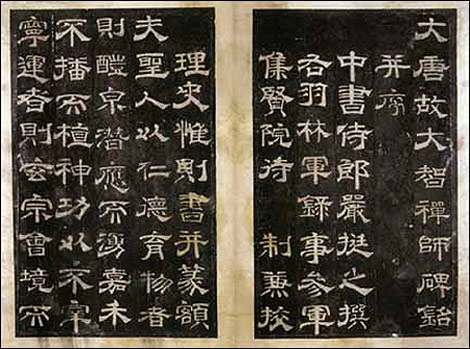 大唐故大智禪師碑銘
并序
中書侍郎嚴挺之撰
右羽林軍錄事參軍
集賢院待制兼挍
理史惟則書并篆額
夫聖人以仁德育物者
則醴泉潛應而湧嘉禾
不播而植神功以不宰
寧運者則玄宗會境而